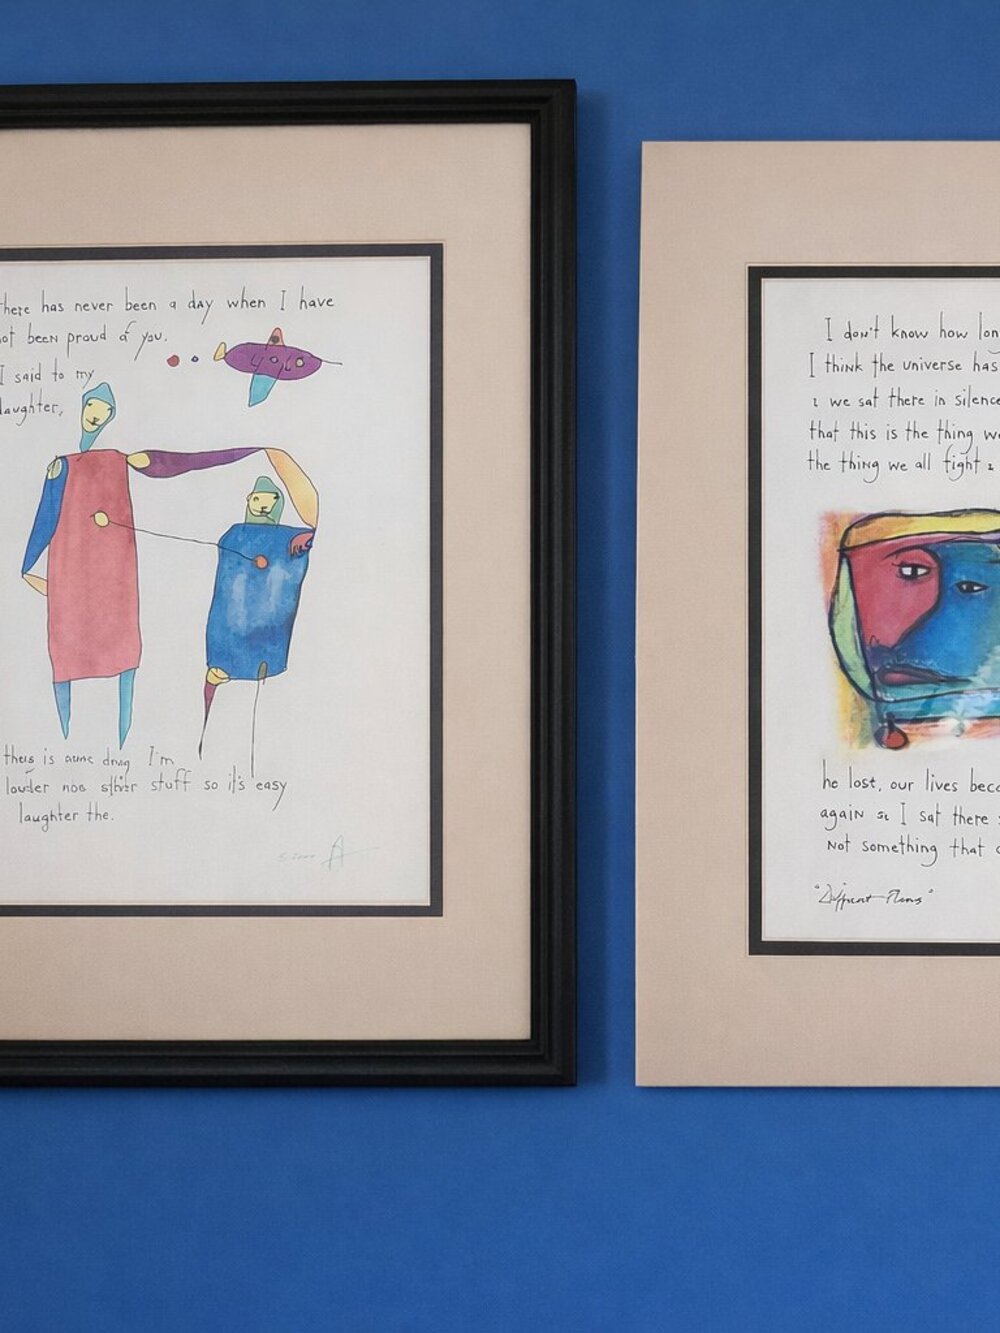 there has never been a day when I have
not been proud of you.
I said to my
daughter,
is
I'm
louder stuff so it's easy
laughter the.
I don't know how long
I think the universe has
we sat there in silence
that this is the thing we
the thing we all fight
he lost, our lives beca
again I sat there
Not something that